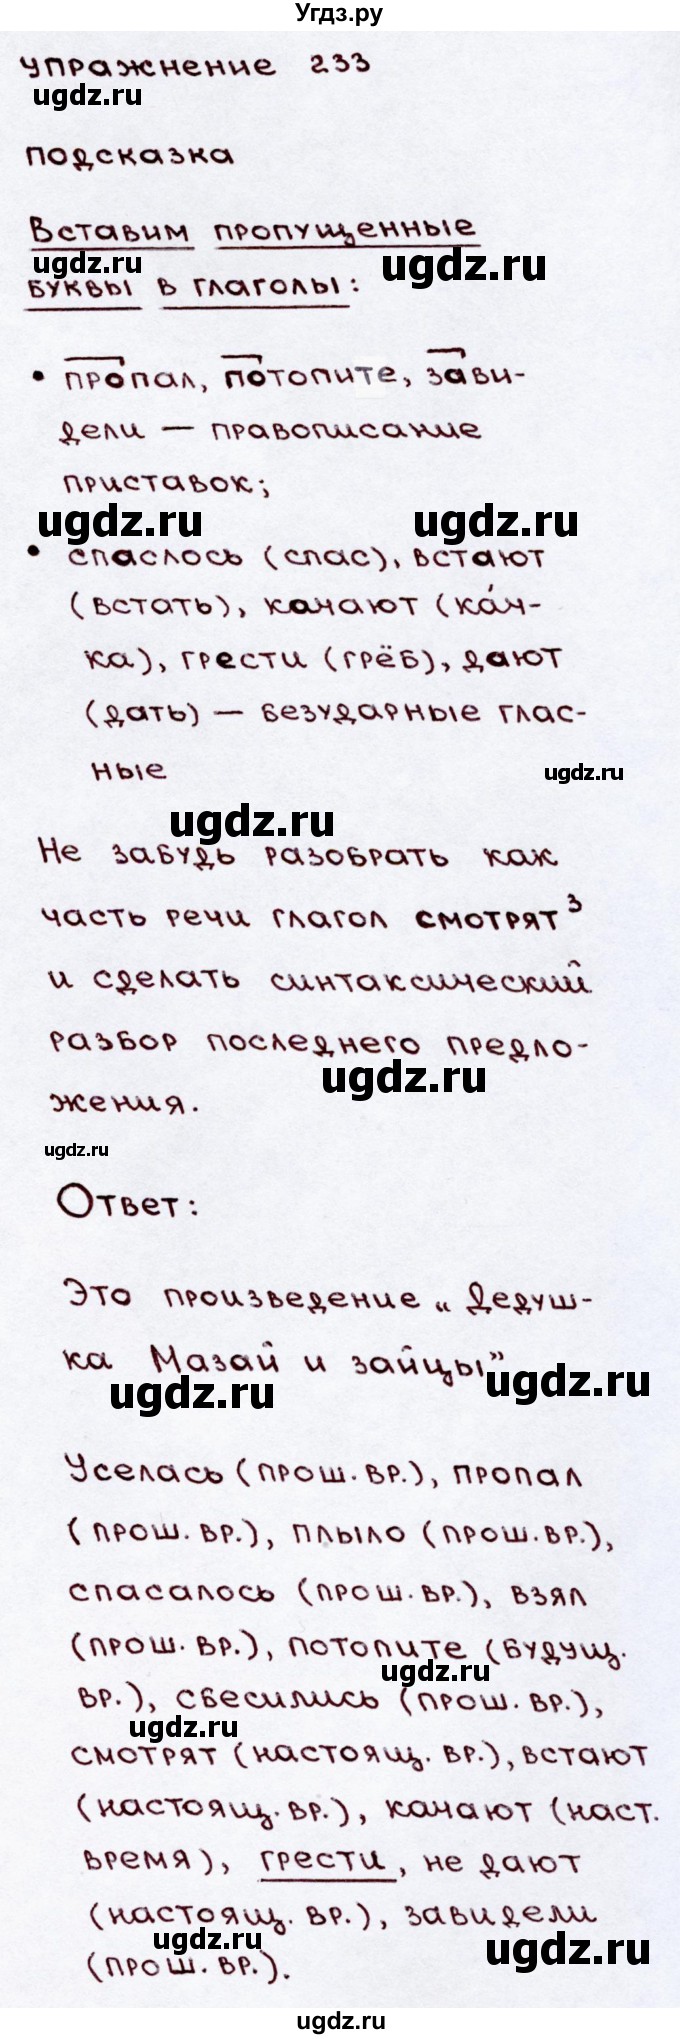 Угдз.ру
упражнение 233
ugdz.ru
подсказка
Вставим пропущенные
ugdz.ru ugdz.ru
буквы в глаголы:
• пропал, потопите, зави-
дели — правописание
приставок;
ugdz.ru ugdz.ru
• спаслось (спас), встают
(встать), качают (ка́ч-
ка), грести (грёб), дают
(дать) — безударные глас-
ные
ugdz.ru
ugdz.ru
Не забудь разобрать как
часть речи глагол смотрят³
и сделать синтаксический
разбор последнего предло-
ugdz.ru
жения.
ugdz.ru
Ответ:
Это произведение „Дедуш-
ка Мазай и зайцы”
ugdz.ru ugdz.ru
Уселась (прош. вр.), пропал
(прош. вр.), плыло (прош. вр.),
спасалось (прош. вр.), взял
(прош. вр.), потопите (будущ.
ugdz.ru
вр.), сбесились (прош. вр.),
ugdz.ru
смотрят (настоящ. вр.), встают
(настоящ. вр.), качают (наст.
время), грести, не дают
(настоящ. вр.), завидели
ugdz.ru ugdz.ru
(прош. вр.).
ugdz.ru